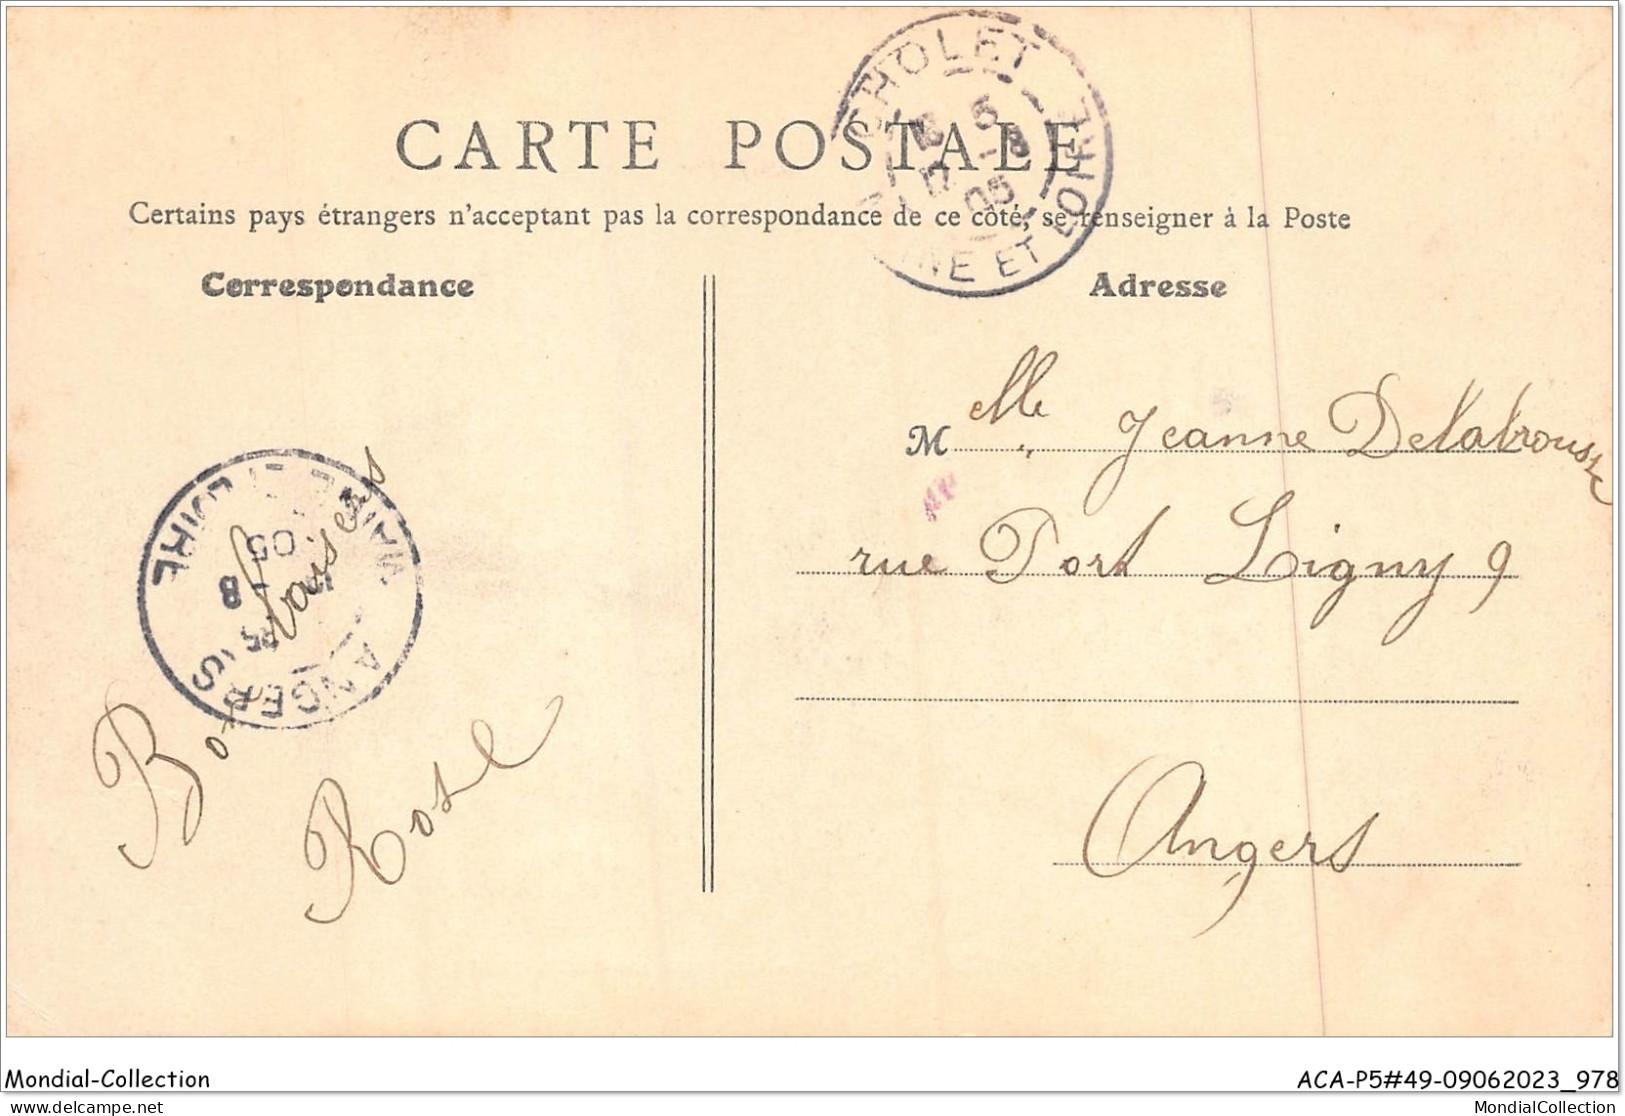 CARTE POSTALE
Certains pays étrangers n'acceptant pas la correspondance de ce côté, se renseigner à la Poste
Correspondance
Adresse
CHOLET
16 5
17 -8
05
MAINE ET LOIRE
Melle Jeanne Delabrousse
rue Port Ligny 9
Angers
MAINE ET LOIRE
05
8
ANGERS
Bons baisers
Rose
Mondial-Collection
ACA-P5#49-09062023_978
MondialCollection
MondialCollection